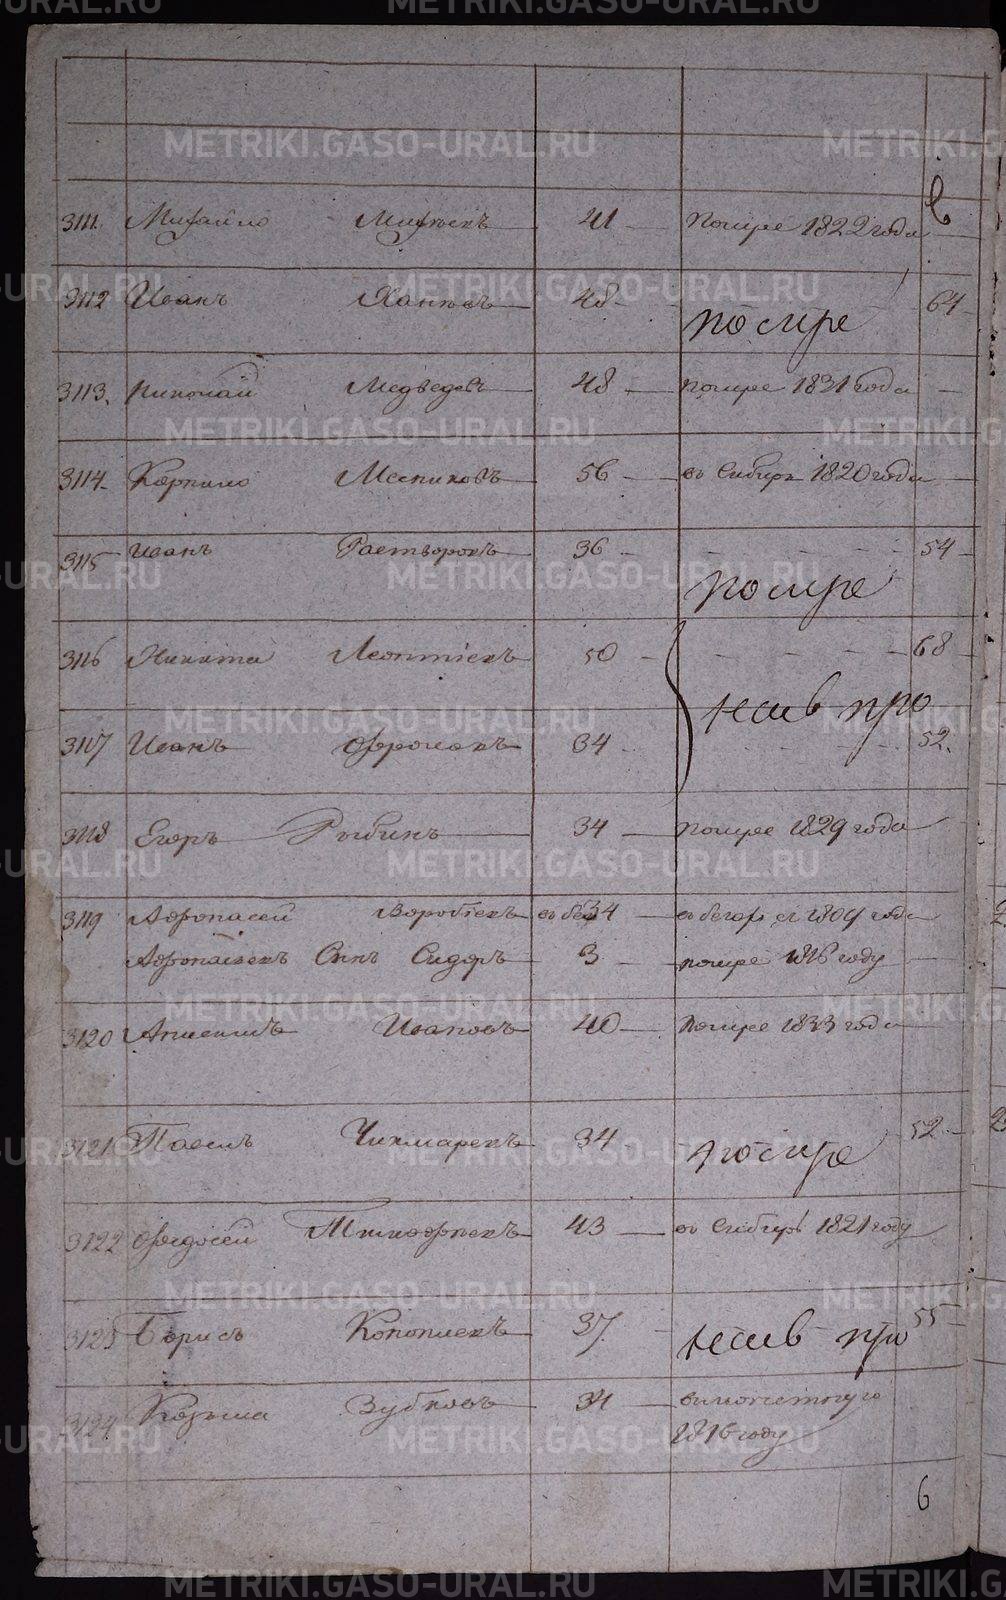 METRIKI.GASO-URAL.RU
в
3111. Михайло Михѣевъ 41 помре 1822 года
3112 Иванъ 48 64
помре
3113. Николай Медведевъ 48 помре 1831 года
3114. Карпило Месниковъ 56 въ Сибирь 1820 года
3115 Иванъ Растворовъ 36 54
помре
3116 Никита Леонтіевъ 50 68
3117 Иванъ 34 52.
3118 Егоръ Рыбинъ 34 помре 1829 года
3119 Афонасей Воробьевъ 34 въ бегах с 1809 года
Афонасьевъ Сынъ Сидоръ 3 помре 1816 году
3120 Ивановъ 40 помре 1833 года
3121 Чикмаревъ 34 52
помре
3122 Федосей 43 въ Сибирь 1821 году
3123 Борисъ Кононьевъ 37. 55
3124 Козьма Зубковъ 34
1816 году
6